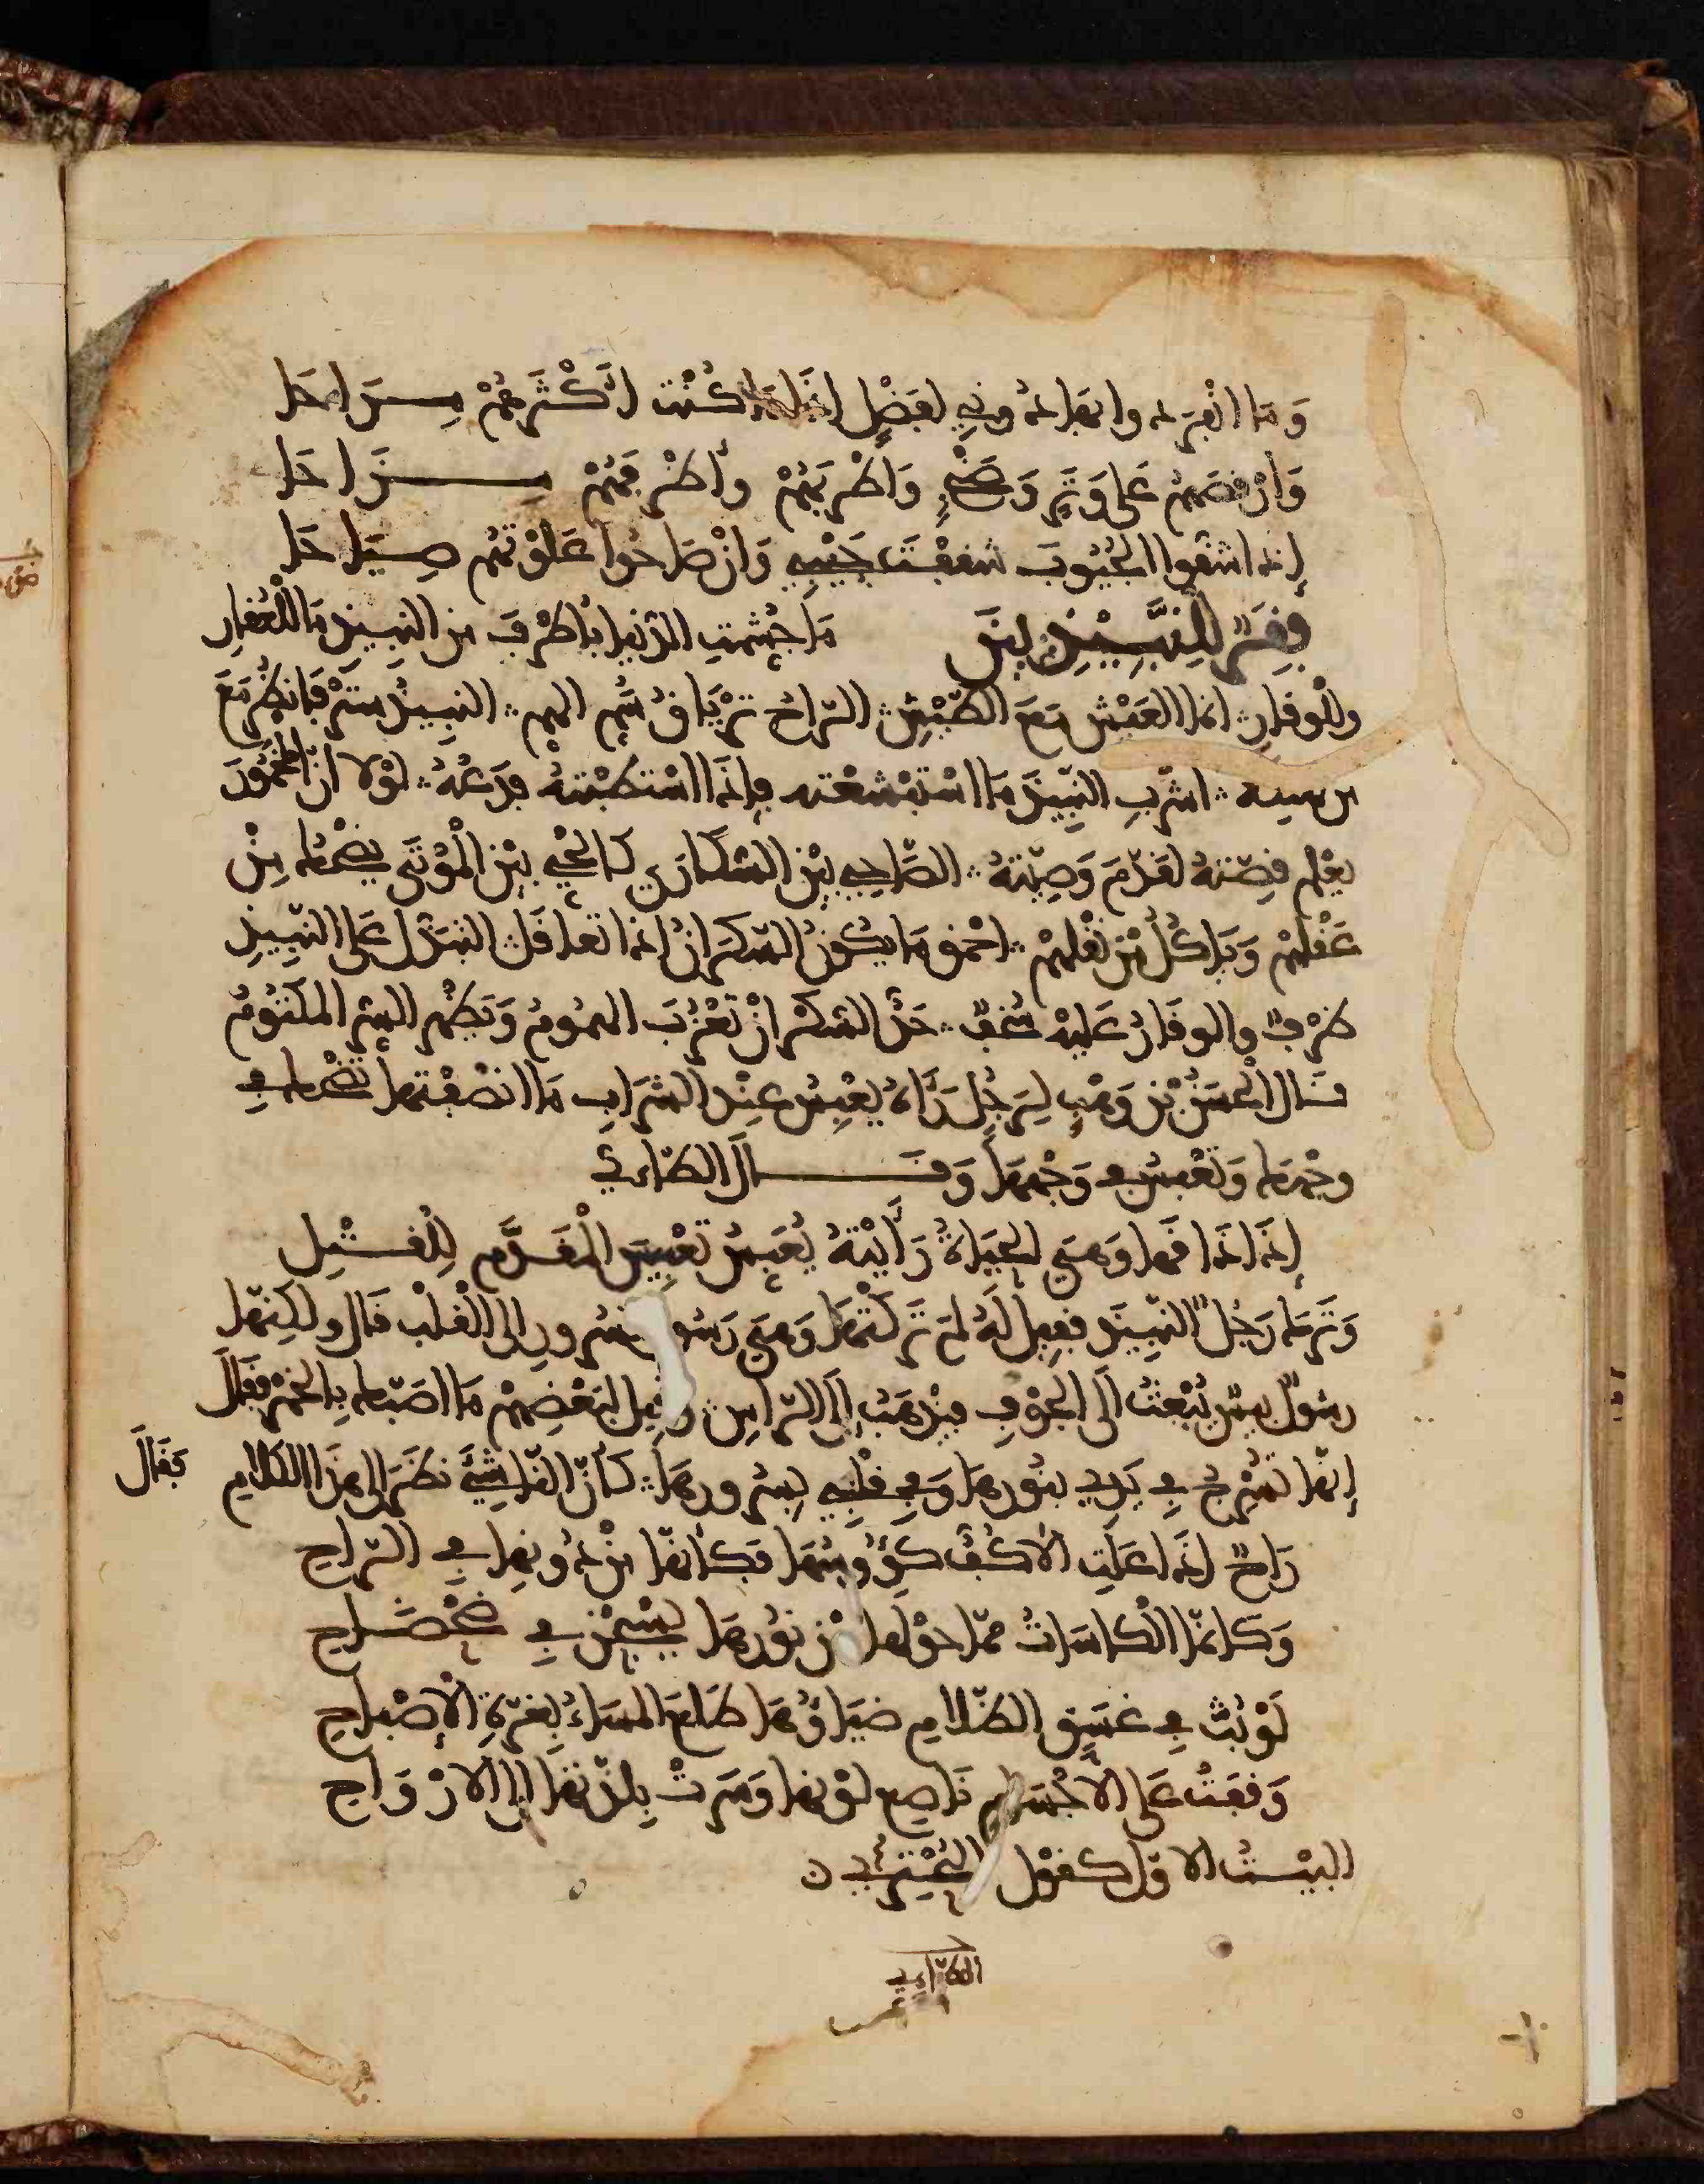 وَمَا انْفَرَدوا بهَا دُونِي لفَضْلٍ إذَا مَا كُنْت أَكْثَرَهُمْ مِـزَاحَا
وَأرْفَصَهُمْ عَلَى وَتَرٍ وَصَنْجٍ وَأطْرَبَهُمْ وأظْرَفَهُمْ مِـزَاحَا
إذا شقوا الجُيُوبَ شققْتُ جَيْبِي وَإنْ صَاحُوا عَلَوْتهُم صِيَاحَا
فِقَرٌ لِلنَّبِيذِيِّينَ مَا جُمِشَتِ الدّنيا بأظْرفَ من النبيذِ مَا للْعُقارِ
وللْوقارِ ؞ انما العَيْش مَعَ الطّيْشِ ؞ الرّاحُ تِرْيَاقُ سُمِّ الهمِّ ؞ النبِيذُ سِتْرٌ فَانظُرْ مَعَ
من تهتكه ؞ اشرَبِ النّبِيذَ مَا اسْتَبْشَعْته فإذَا اسْتطبْتهُ فدَعْهُ ؞ لوْلا انّ المخْمُورَ
يعْلم قِصّتهُ لقَدّمَ وَصِيّتهُ ؞ الصّاحِي بيْن السّكَارَى كالحَيِّ بيْن الْمَوْتَى يضْحَك مِنْ
عَقْلِهِمْ وَيَاكُلُ مِن نقْلِهِمْ ؞ احْمق مَا يكون السّكرَانُ اذا تعاقَل ؞ التبَذّل عَلى النّبِيذِ
ظرْفٌ والوقَارُ عَليْهِ سُخفٌ ؞ حَدُّ السّكْر انْ تعْزُبَ الهمومُ وَيَظهر السِّر المكتُومُ
قـال الْحَسَنُ بْن وَهْبٍ لِرَجُلٍ رَءاهُ يُعبِسُ عِنْد الشّرَابِ مَا انْصَفْتهَا تَضْحك فِي
وجْهك وَتَعْبِسُ فِي وَجْهِهَا وَقَـالَ الطّاءِي
إذَا ذَاقَهَا وَهِيَ الحيَاةُ رَأَيْتهُ يُعَبّسُ تعْبِيسَ الْمُقَـدَّمِ لِلْقَتْلِ
وَتَرَك رَجُلٌ النّبِيذ فقِيل لَهُ لِمَ تَرَكْتهَا وَهِيَ رَسُول سُرورٍ الى الْقلْب قَال ولكِنّها
رسُولٌ بِيسَ يُبْعَثُ الَى الجَوْفِ فيَذهَبُ إلَى الرّاسِ ؞ وقِيل لِبَعْضِهِمْ مَا اصَبّك بِالخَمْر فقَالَ
إنّها تُسْرِجُ فِي يَدِي بنُورِهَا وَفي قلْبِي بِسُرورِهَا ؞ كأنّ النّاشِئَ نظَرَ الى هذَا الكلامِ فقَالَ
رَاحٌ إذَا عَلَتِ الأكُفَّ كؤُوسُهَا فكَأنّها مِنْ دُونِها فِي الرّاحِ
وَكَانمّا الكاسَاتُ ممّا حوْلها مِنْ نُورِهَا يَسْبحْنَ في ضَحْضَـاحِ
لَوْ بُثَّ في غسَق الظّلامِ ضيَاؤُهَا طلَعَ المسَاءُ بِغُرّةِ الْإِصْبَاحِ
نَفَضَتْ عَلى الأجْسَامِ نَاصِع لوْنها وَسَرَتْ بِلذّتهَا إلى الأرْوَاحِ
البيْـتُ الاوّل كقوْل البُحْتُرِيِّ ن